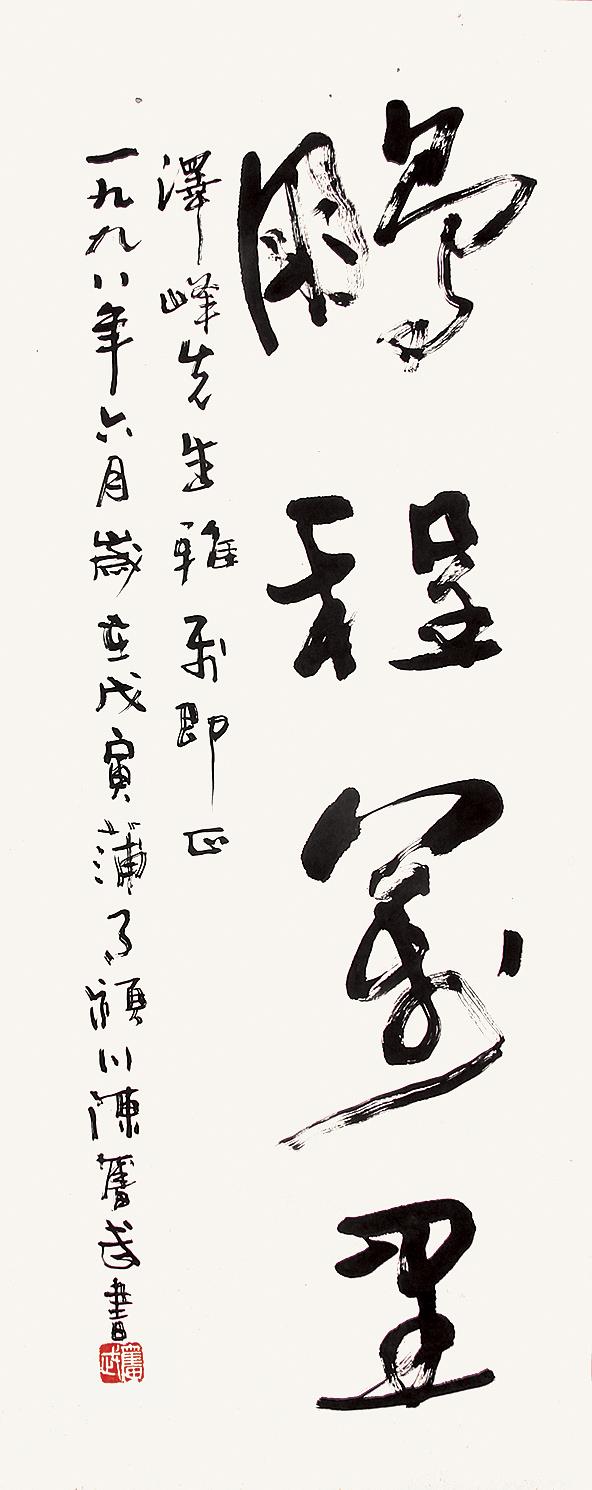 鵬程萬里
澤峰先生雅屬即正
一九九八年六月歲在戊寅蒲月潁川陳奮武書
奮武